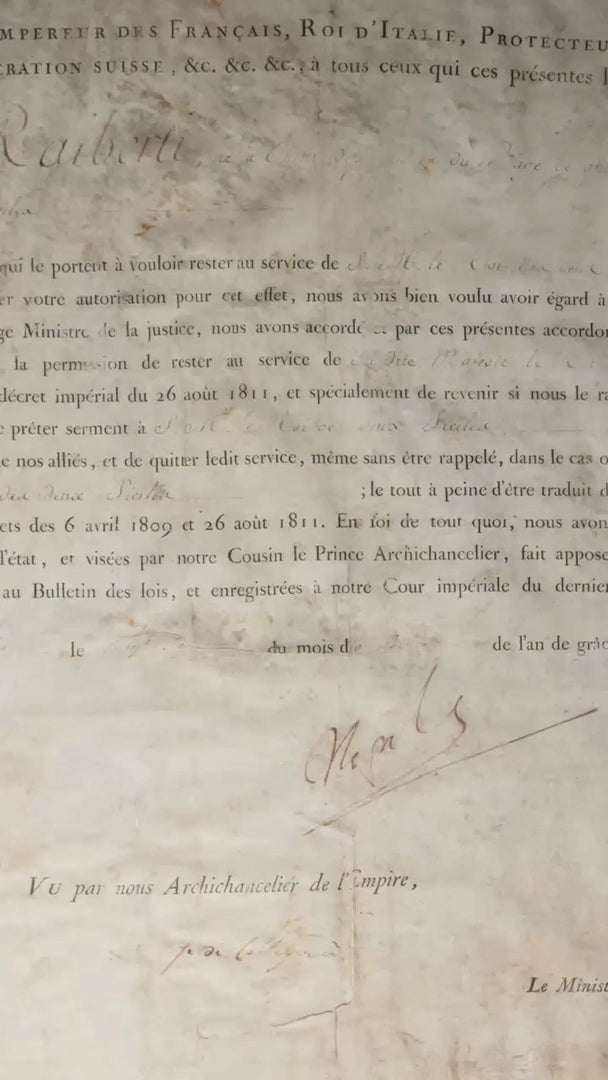 MPEREUR DES FRANÇAIS, ROI D'ITALIE, PROTECTEU
RATION SUISSE, &c. &c. &c., à tous ceux qui ces présentes l
Raiberti, né à
qui le portent à vouloir rester au service de S. M. le
er votre autorisation pour cet effet, nous avons bien voulu avoir égard à
ge Ministre de la justice, nous avons accordé et par ces présentes accordon
la permission de rester au service de Sa dite Majesté le
décret impérial du 26 août 1811, et spécialement de revenir si nous le ra
e prêter serment à S. M. le Roi des deux Siciles
e nos alliés, et de quitter ledit service, même sans être rappelé, dans le cas o
des deux Siciles ; le tout à peine d'être traduit d
ets des 6 avril 1809 et 26 août 1811. En foi de tout quoi, nous avon
l'état, et visées par notre Cousin le Prince Archichancelier, fait appose
au Bulletin des lois, et enregistrées à notre Cour impériale du dernier
le du mois de de l'an de grâc
VU par nous Archichancelier de l'Empire,
Le Minist